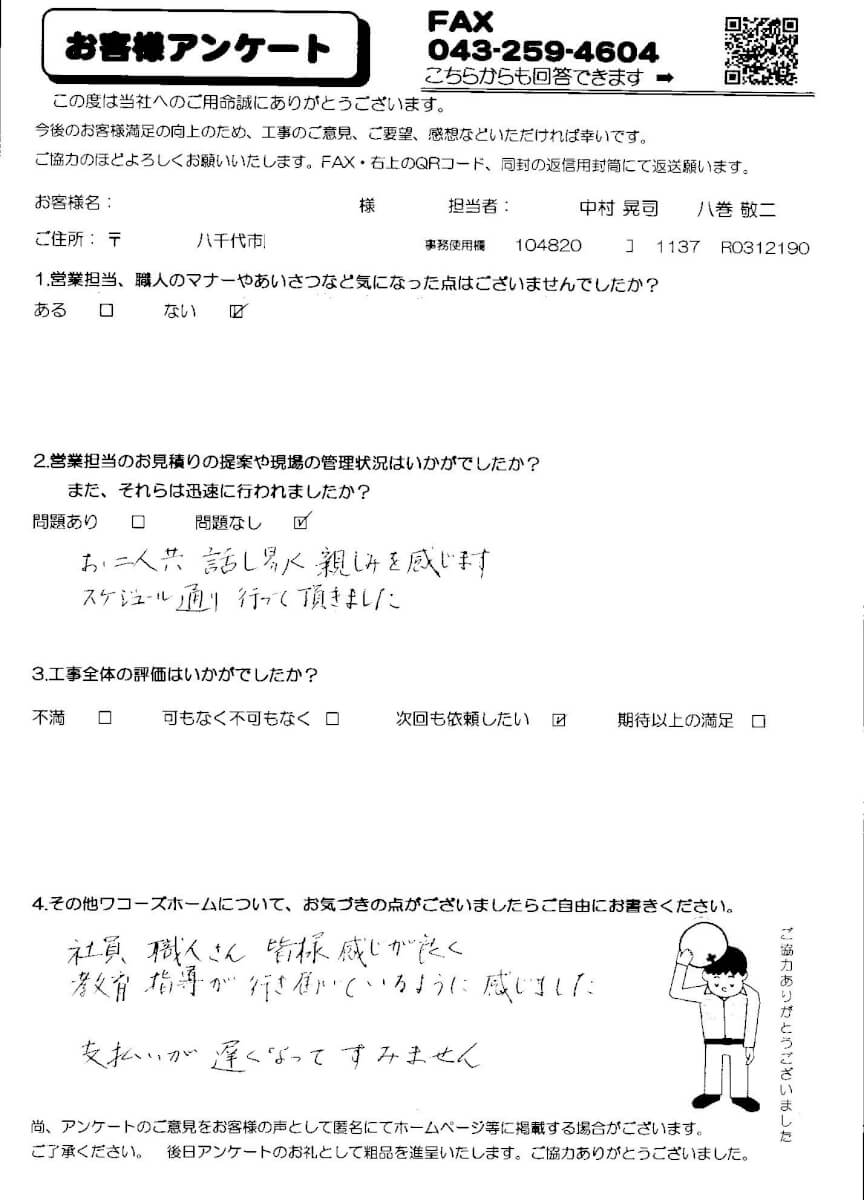 お客様アンケート
FAX
043-259-4604
こちらからも回答できます ➡
この度は当社へのご用命誠にありがとうございます。
今後のお客様満足の向上のため、工事のご意見、ご要望、感想などいただければ幸いです。
ご協力のほどよろしくお願いいたします。FAX・右上のQRコード、同封の返信用封筒にて返送願います。
お客様名： 様 担当者： 中村 晃司 八巻 敬二
ご住所：〒 八千代市 事務使用欄 104820 1137 R0312190
1.営業担当、職人のマナーやあいさつなど気になった点はございませんでしたか？
ある □ ない ☑
2.営業担当のお見積りの提案や現場の管理状況はいかがでしたか？
また、それらは迅速に行われましたか？
問題あり □ 問題なし ☑
お二人共 話し易く 親しみを感じます
スケジュール通り 行って頂きました
3.工事全体の評価はいかがでしたか？
不満 □ 可もなく不可もなく □ 次回も依頼したい ☑ 期待以上の満足 □
4.その他ワコーズホームについて、お気づきの点がございましたらご自由にお書きください。
社員 職人さん 皆様 感じが良く
教育 指導が 行き届いているように 感じました
支払いが 遅くなって すみません
ご協力ありがとうございました
尚、アンケートのご意見をお客様の声として匿名にてホームページ等に掲載する場合がございます。
ご了承ください。 後日アンケートのお礼として粗品を進呈いたします。ご協力ありがとうございました。